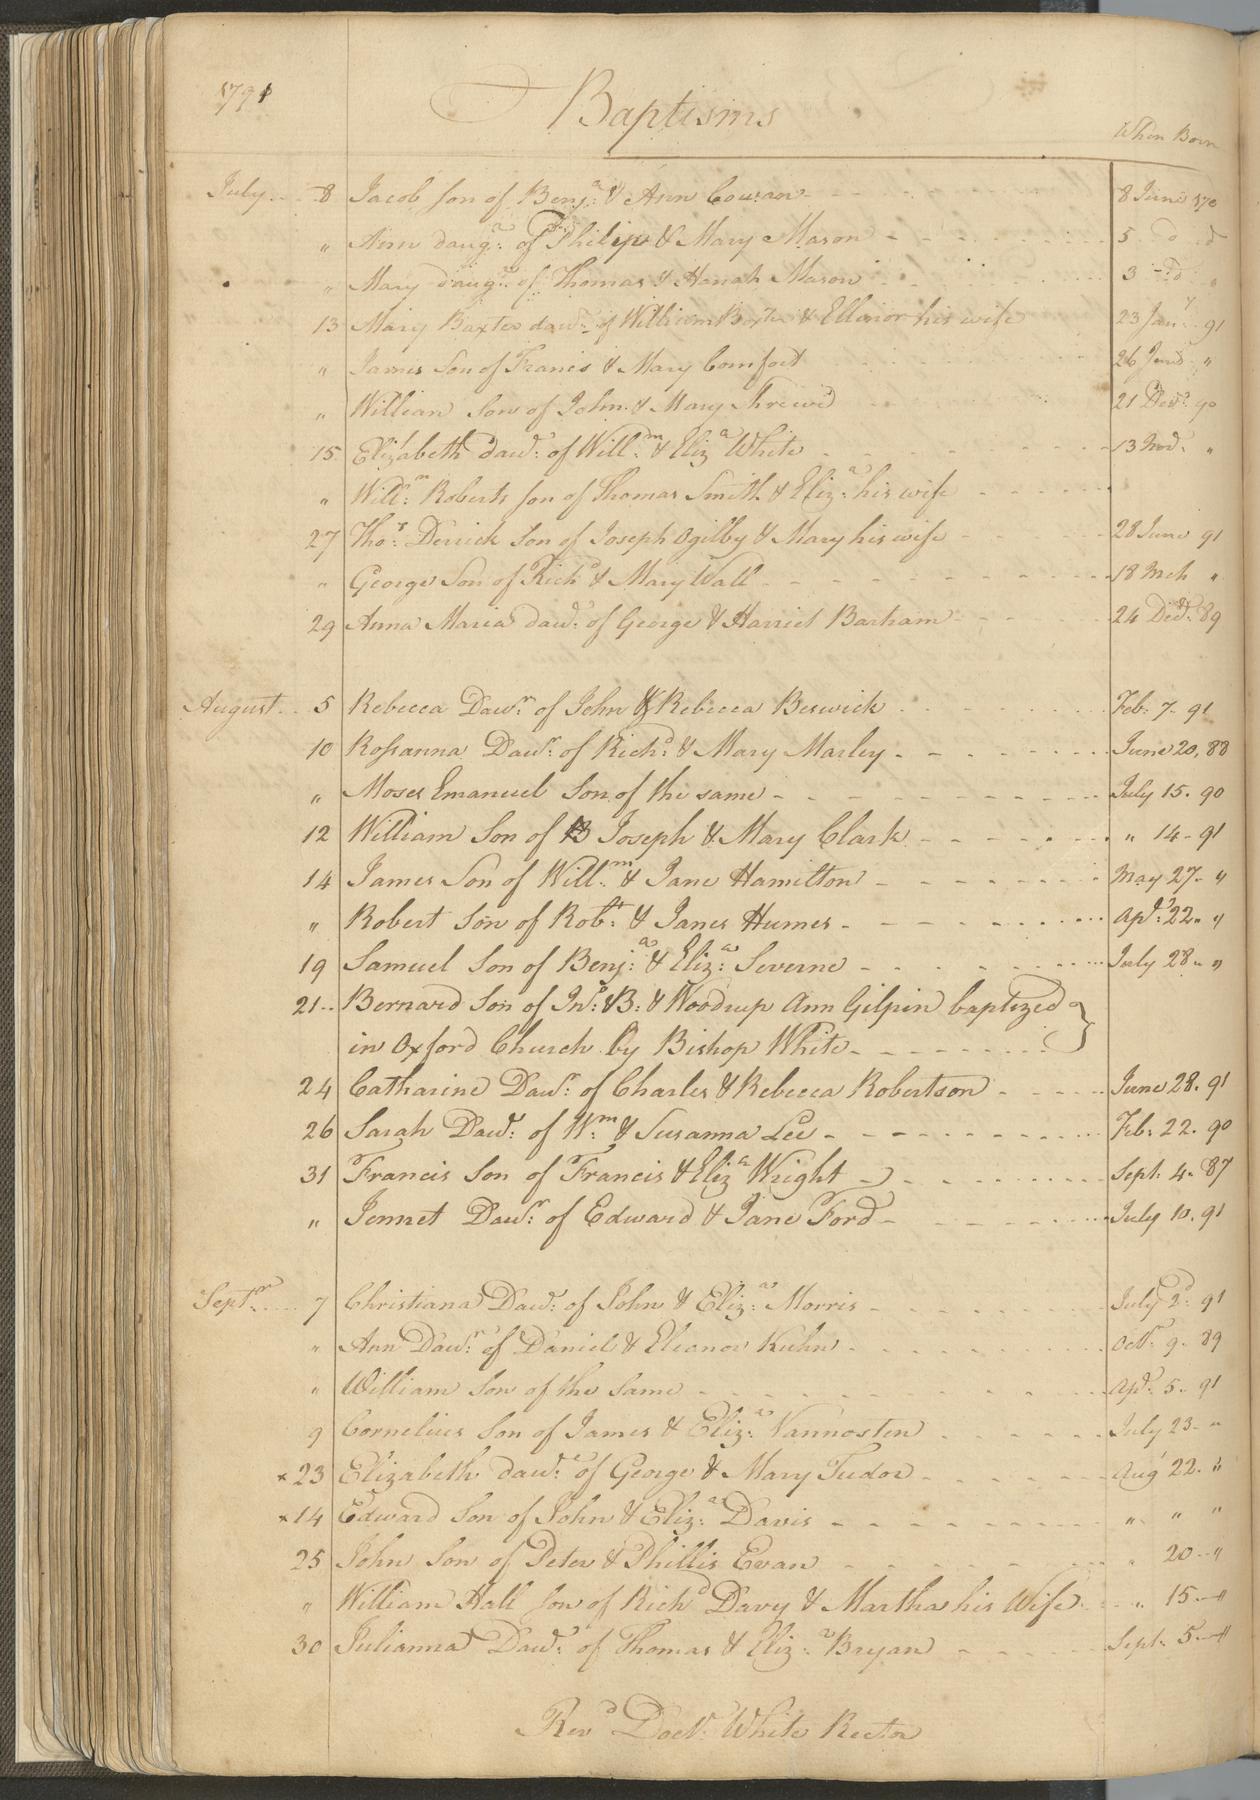 1791 Baptisms When Born
July 8 Jacob son of Benj.ª & Ann Cowan 8 June 170
" Ann daug.r of Philip & Mary Mason 5 do do
" Mary daug.r of Thomas & Hanah Mason 3 do "
13 Mary Baxter daur. of William Baxter & Ellinor his wife 23 Jany. 91
" James Son of Francis & Mary Comfort 26 "
" William Son of John & Mary 21 Decr. 90
15 Elizabeth daur. of Will.m & Eliz.a White 13 Novr. "
" Will.m Roberts son of Thomas Smith & Eliz.a his wife
27 Tho.s Derrick Son of Joseph Ogilby & Mary his wife 28 June 91
" George Son of Richd & Mary Wall 18 Mch "
29 Anna Maria daur. of George & Harriet Bartram 24 Decr. 89
August 5 Rebecca Daur. of John & Rebecca Beswick Feb: 7. 91
10 Rossanna Daur. of Richd. & Mary Marley June 20, 88
" Moses Emanuel Son of the same July 15. 90
12 William Son of B Joseph & Mary Clark " 14. 91
14 James Son of Will.m & Jane Hamilton May 27. "
" Robert Son of Robt. & Janes Humes Apl. 22. "
19 Samuel Son of Benj.a & Eliz.a Severne July 28. "
21 Bernard Son of Jno. & B: & Woodrup Ann Gilpin baptized }
in Oxford Church by Bishop White
24 Catharine Daur. of Charles & Rebecca Robertson June 28. 91
26 Sarah Daur. of Wm. & Susanna Lee Feb: 22. 90
31 Francis Son of Francis & Eliz.a Wright Sept. 4. 87
" Jennet Daur. of Edward & Jane Ford July 10. 91
Septr. 7 Christiana Daur. of John & Eliz.a Morris July 2d. 91
" Ann Daur. of Daniel & Eleanor Kuhn Octr. 9. 89
" William Son of the Same Apl. 5. 91
9 Cornelius Son of James & Eliz.a Vannosten July 23. "
x 23 Elizabeth daur. of George & Mary Tudor Aug 22. "
x 14 Edward Son of John & Eliz.a Davis " " "
25 John Son of Peter & Phillis Evan " 20 "
" William Hall Son of Richd Davy & Martha his Wife " 15 "
30 Julianna Daur. of Thomas & Eliz.a Bryan Sept. 5 "
Revd Doctr. White Rector